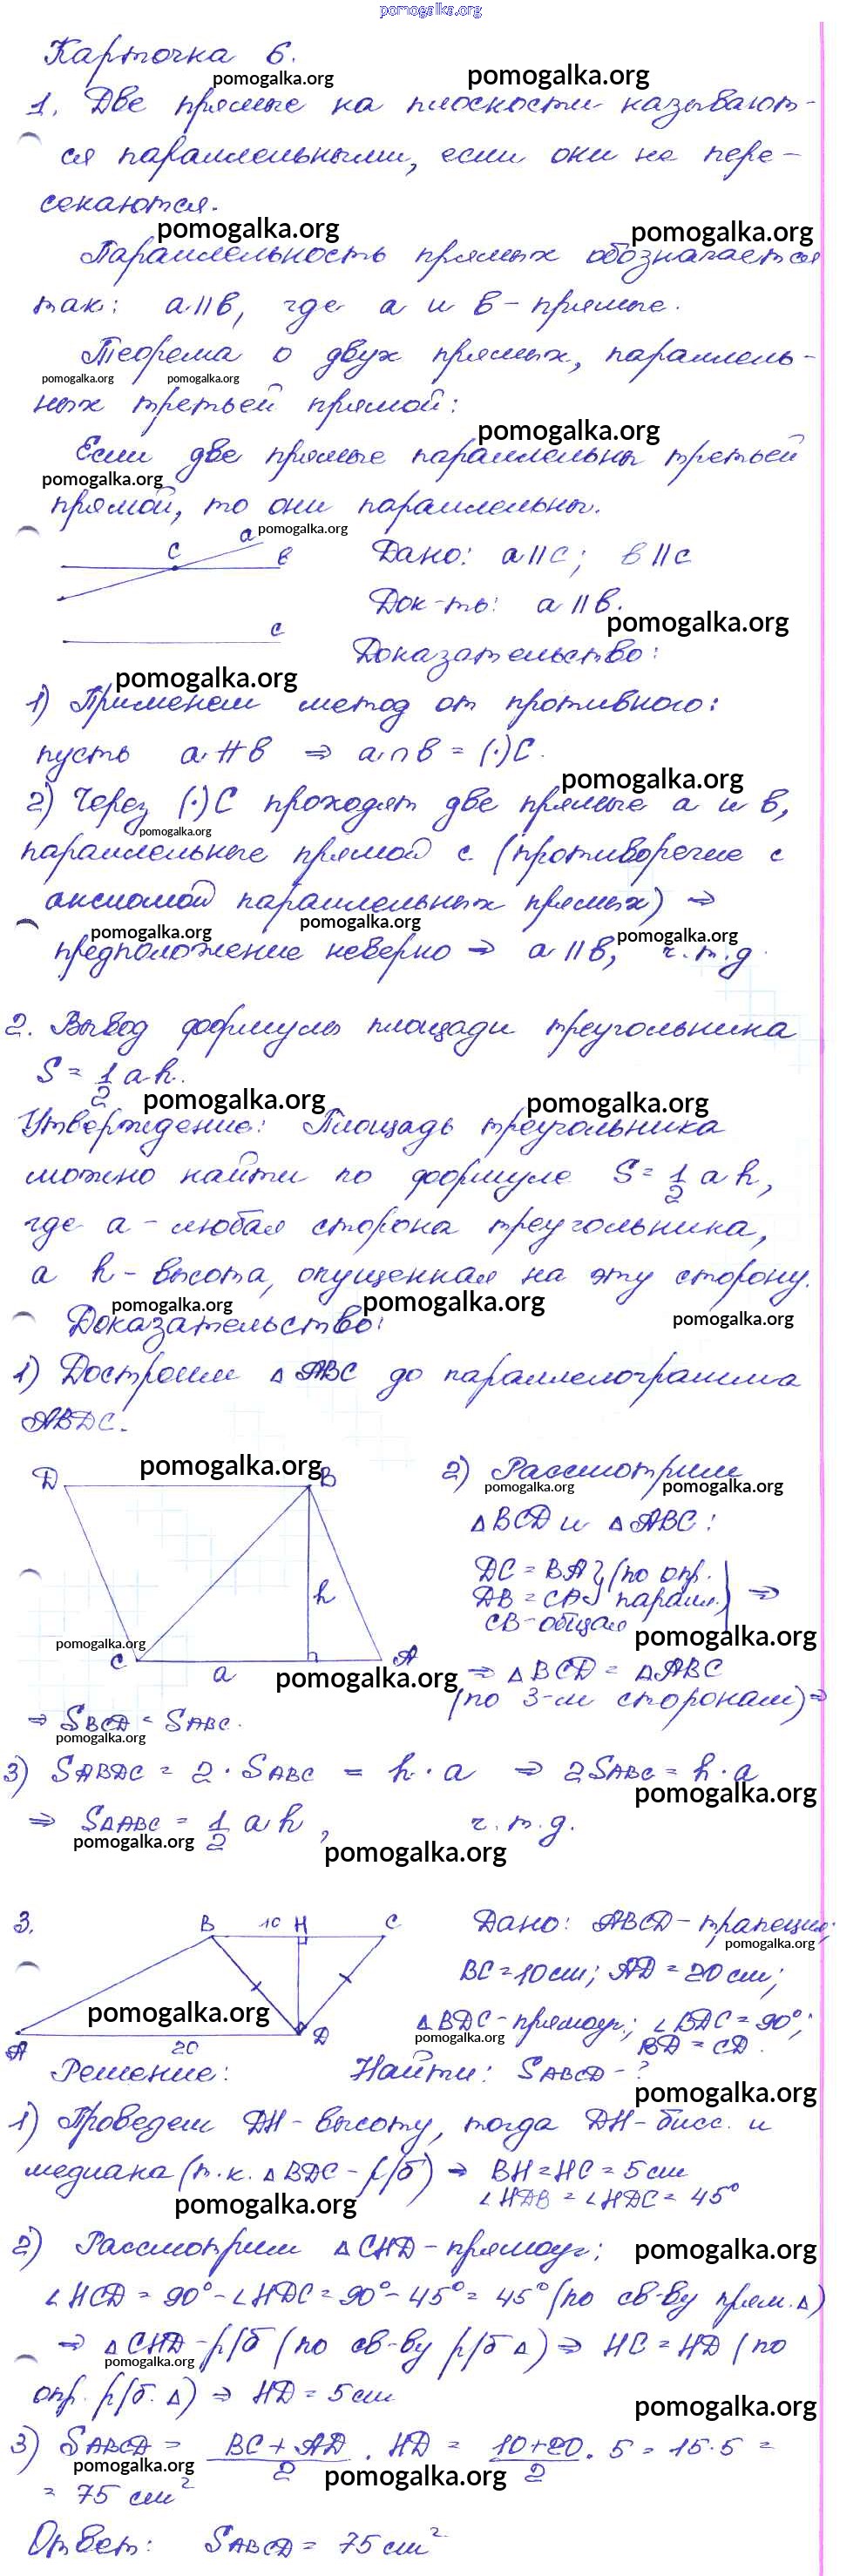 pomogalka.org
Карточка 6.
pomogalka.org pomogalka.org
1. Две прямые на плоскости называют-
ся параллельными, если они не пере-
секаются.
pomogalka.org pomogalka.org
Параллельность прямых обозначается
так: a || b, где a и b - прямые.
Теорема о двух прямых, параллель-
pomogalka.org pomogalka.org
ных третьей прямой:
pomogalka.org
Если две прямые параллельны третьей
pomogalka.org
прямой, то они параллельны.
pomogalka.org
C a b
Дано: a || c; b || c
Док-ть: a || b.
pomogalka.org
c
Доказательство:
pomogalka.org
1) Применем метод от противного:
пусть a ∦ b ⇒ a ∩ b = (·) C.
pomogalka.org
2) Через (·) C проходят две прямые a и b,
pomogalka.org
параллельные прямой c (противоречие с
аксиомой параллельных прямых) ⇒
pomogalka.org pomogalka.org pomogalka.org
предположение неверно ⇒ a || b, ч.т.д.
2. Вывод формулы площади треугольника
S = 1/2 a h.
pomogalka.org pomogalka.org
Утверждение: Площадь треугольника
можно найти по формуле S = 1/2 a h,
где a - любая сторона треугольника,
а h - высота, опущенная на эту сторону.
pomogalka.org pomogalka.org pomogalka.org
Доказательство:
1) Достроим △ABC до параллелограмма
ABDC.
pomogalka.org
D B
h
C a A
pomogalka.org pomogalka.org
2) Рассмотрим
pomogalka.org pomogalka.org
△BCD и △ABC:
DC = BA } (по опр.
DB = CA } паралл.) ⇒
CB - общая
pomogalka.org
⇒ △BCD = △ABC
(по 3-м сторонам) ⇒
⇒ SBCD = SABC.
pomogalka.org
3) SABDC = 2 · SABC = h · a ⇒ 2SABC = h · a
pomogalka.org
⇒ S△ABC = 1/2 a h, ч.т.д.
pomogalka.org pomogalka.org
3.
B 10 H C
A 20 D
pomogalka.org
Дано: ABCD - трапеция;
pomogalka.org
BC = 10 см; AD = 20 см;
△BDC - прямоуг.; ∠BDC = 90°;
pomogalka.org
BD = CD.
Решение: Найти: SABCD - ?
pomogalka.org
1) Проведем DH - высоту, тогда DH - бисс. и
медиана (т.к. △BDC - р/б) ⇒ BH = HC = 5 см
∠HDB = ∠HDC = 45°
pomogalka.org
2) Рассмотрим △CHD - прямоуг;
pomogalka.org
∠HCD = 90° - ∠HDC = 90° - 45° = 45° (по св-ву прям. △)
⇒ △CHD - р/б (по св-ву р/б △) ⇒ HC = HD (по
pomogalka.org
опр. р/б. △) ⇒ HD = 5 см
pomogalka.org
3) SABCD = (BC + AD)/2 · HD = (10 + 20)/2 · 5 = 15 · 5 =
pomogalka.org pomogalka.org
= 75 см²
Ответ: SABCD = 75 см²